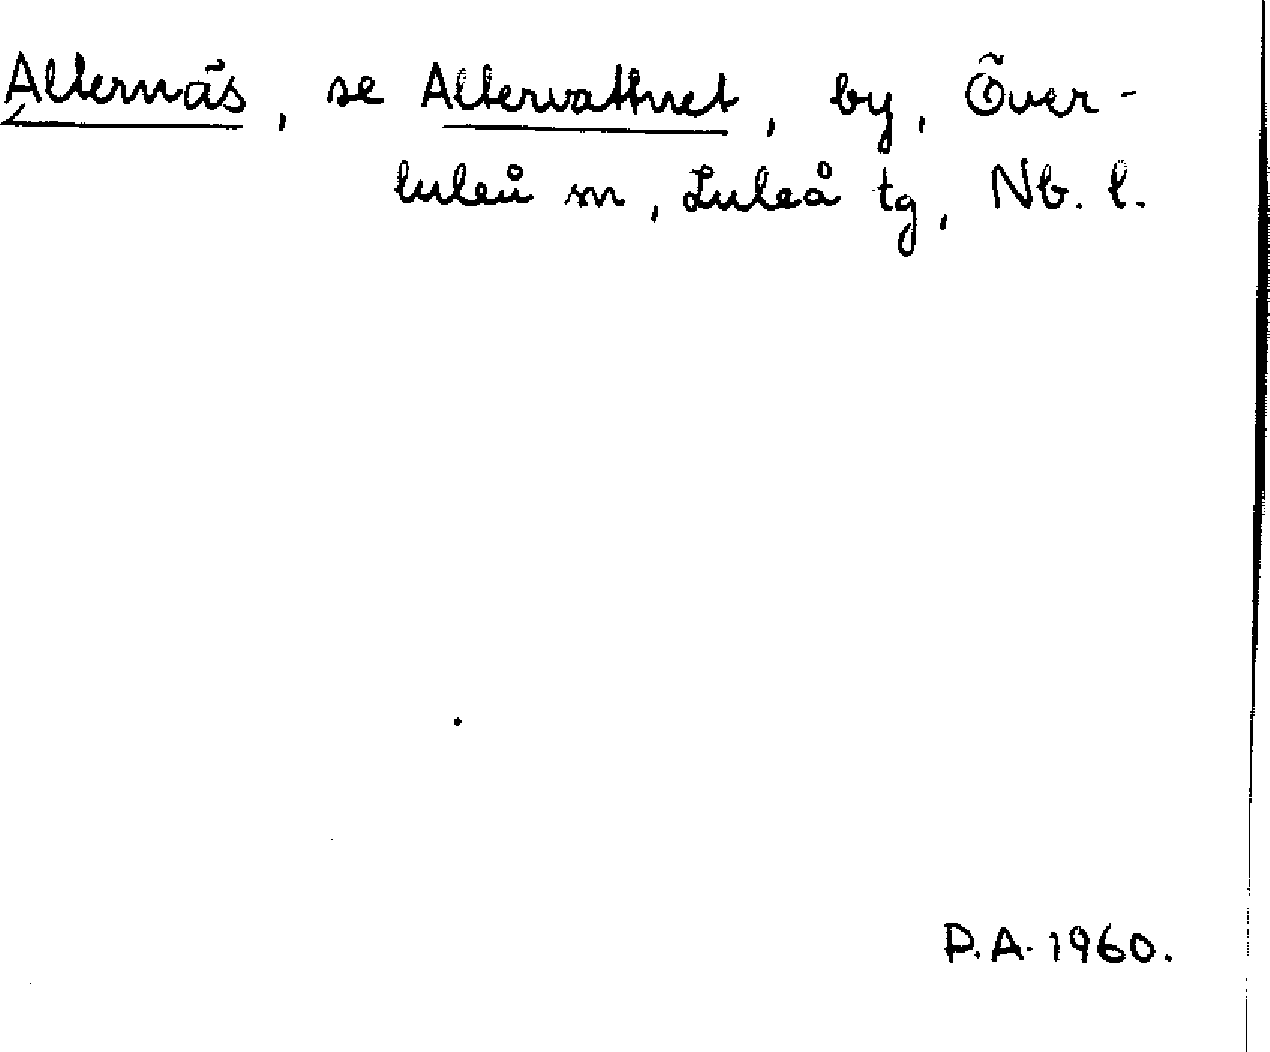 Alternäs, se Altervattnet, by, Över-
luleå sn, Luleå tg, Nb. l.
P.A. 1960.